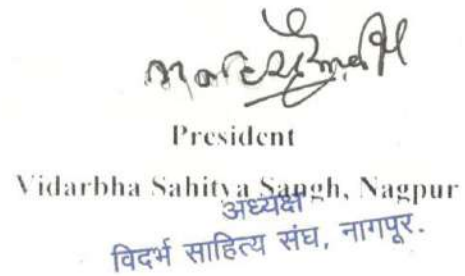 President
Vidarbha Sahitya Sangh, Nagpur
अध्यक्ष
विदर्भ साहित्य संघ, नागपूर.